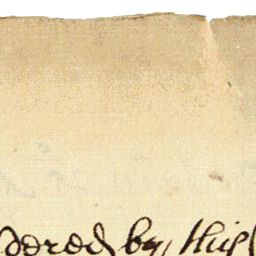 dered by this